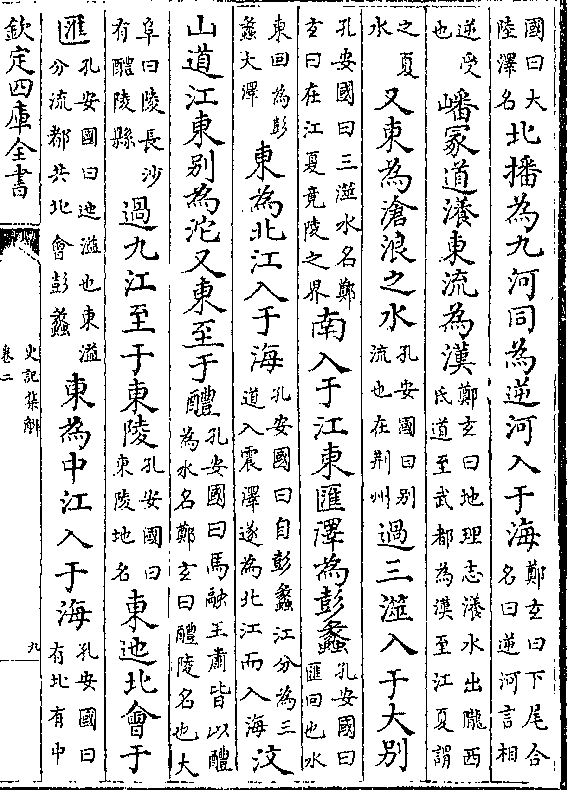 國曰大陸澤名北播為九河同為逆河入于海鄭玄曰下尾合名曰逆河言相
逆受也嶓冢道瀁東流為漢鄭玄曰地理志瀁水出隴西氐道至武都為漢至江夏謂
之夏水又東為滄浪之水孔安國曰別流也在荆州過三澨入于大別
孔安國曰三澨水名鄭玄曰在江夏竟陵之界南入于江東匯澤為彭蠡孔安國曰匯回也水
東回為彭蠡大澤東為北江入于海孔安國曰自彭蠡江分為三道入震澤遂為北江而入海汶
山道江東別為沱又東至于醴孔安國曰馬融王肅皆以醴為水名鄭玄曰醴陵名也大
阜曰陵長沙有醴陵縣過九江至于東陵孔安國曰東陵地名東迆北會于
匯孔安國曰迆溢也東溢分流都共北會彭蠡東為中江入于海孔安國曰有北有中
欽定四庫全書
史記集解
卷二
九